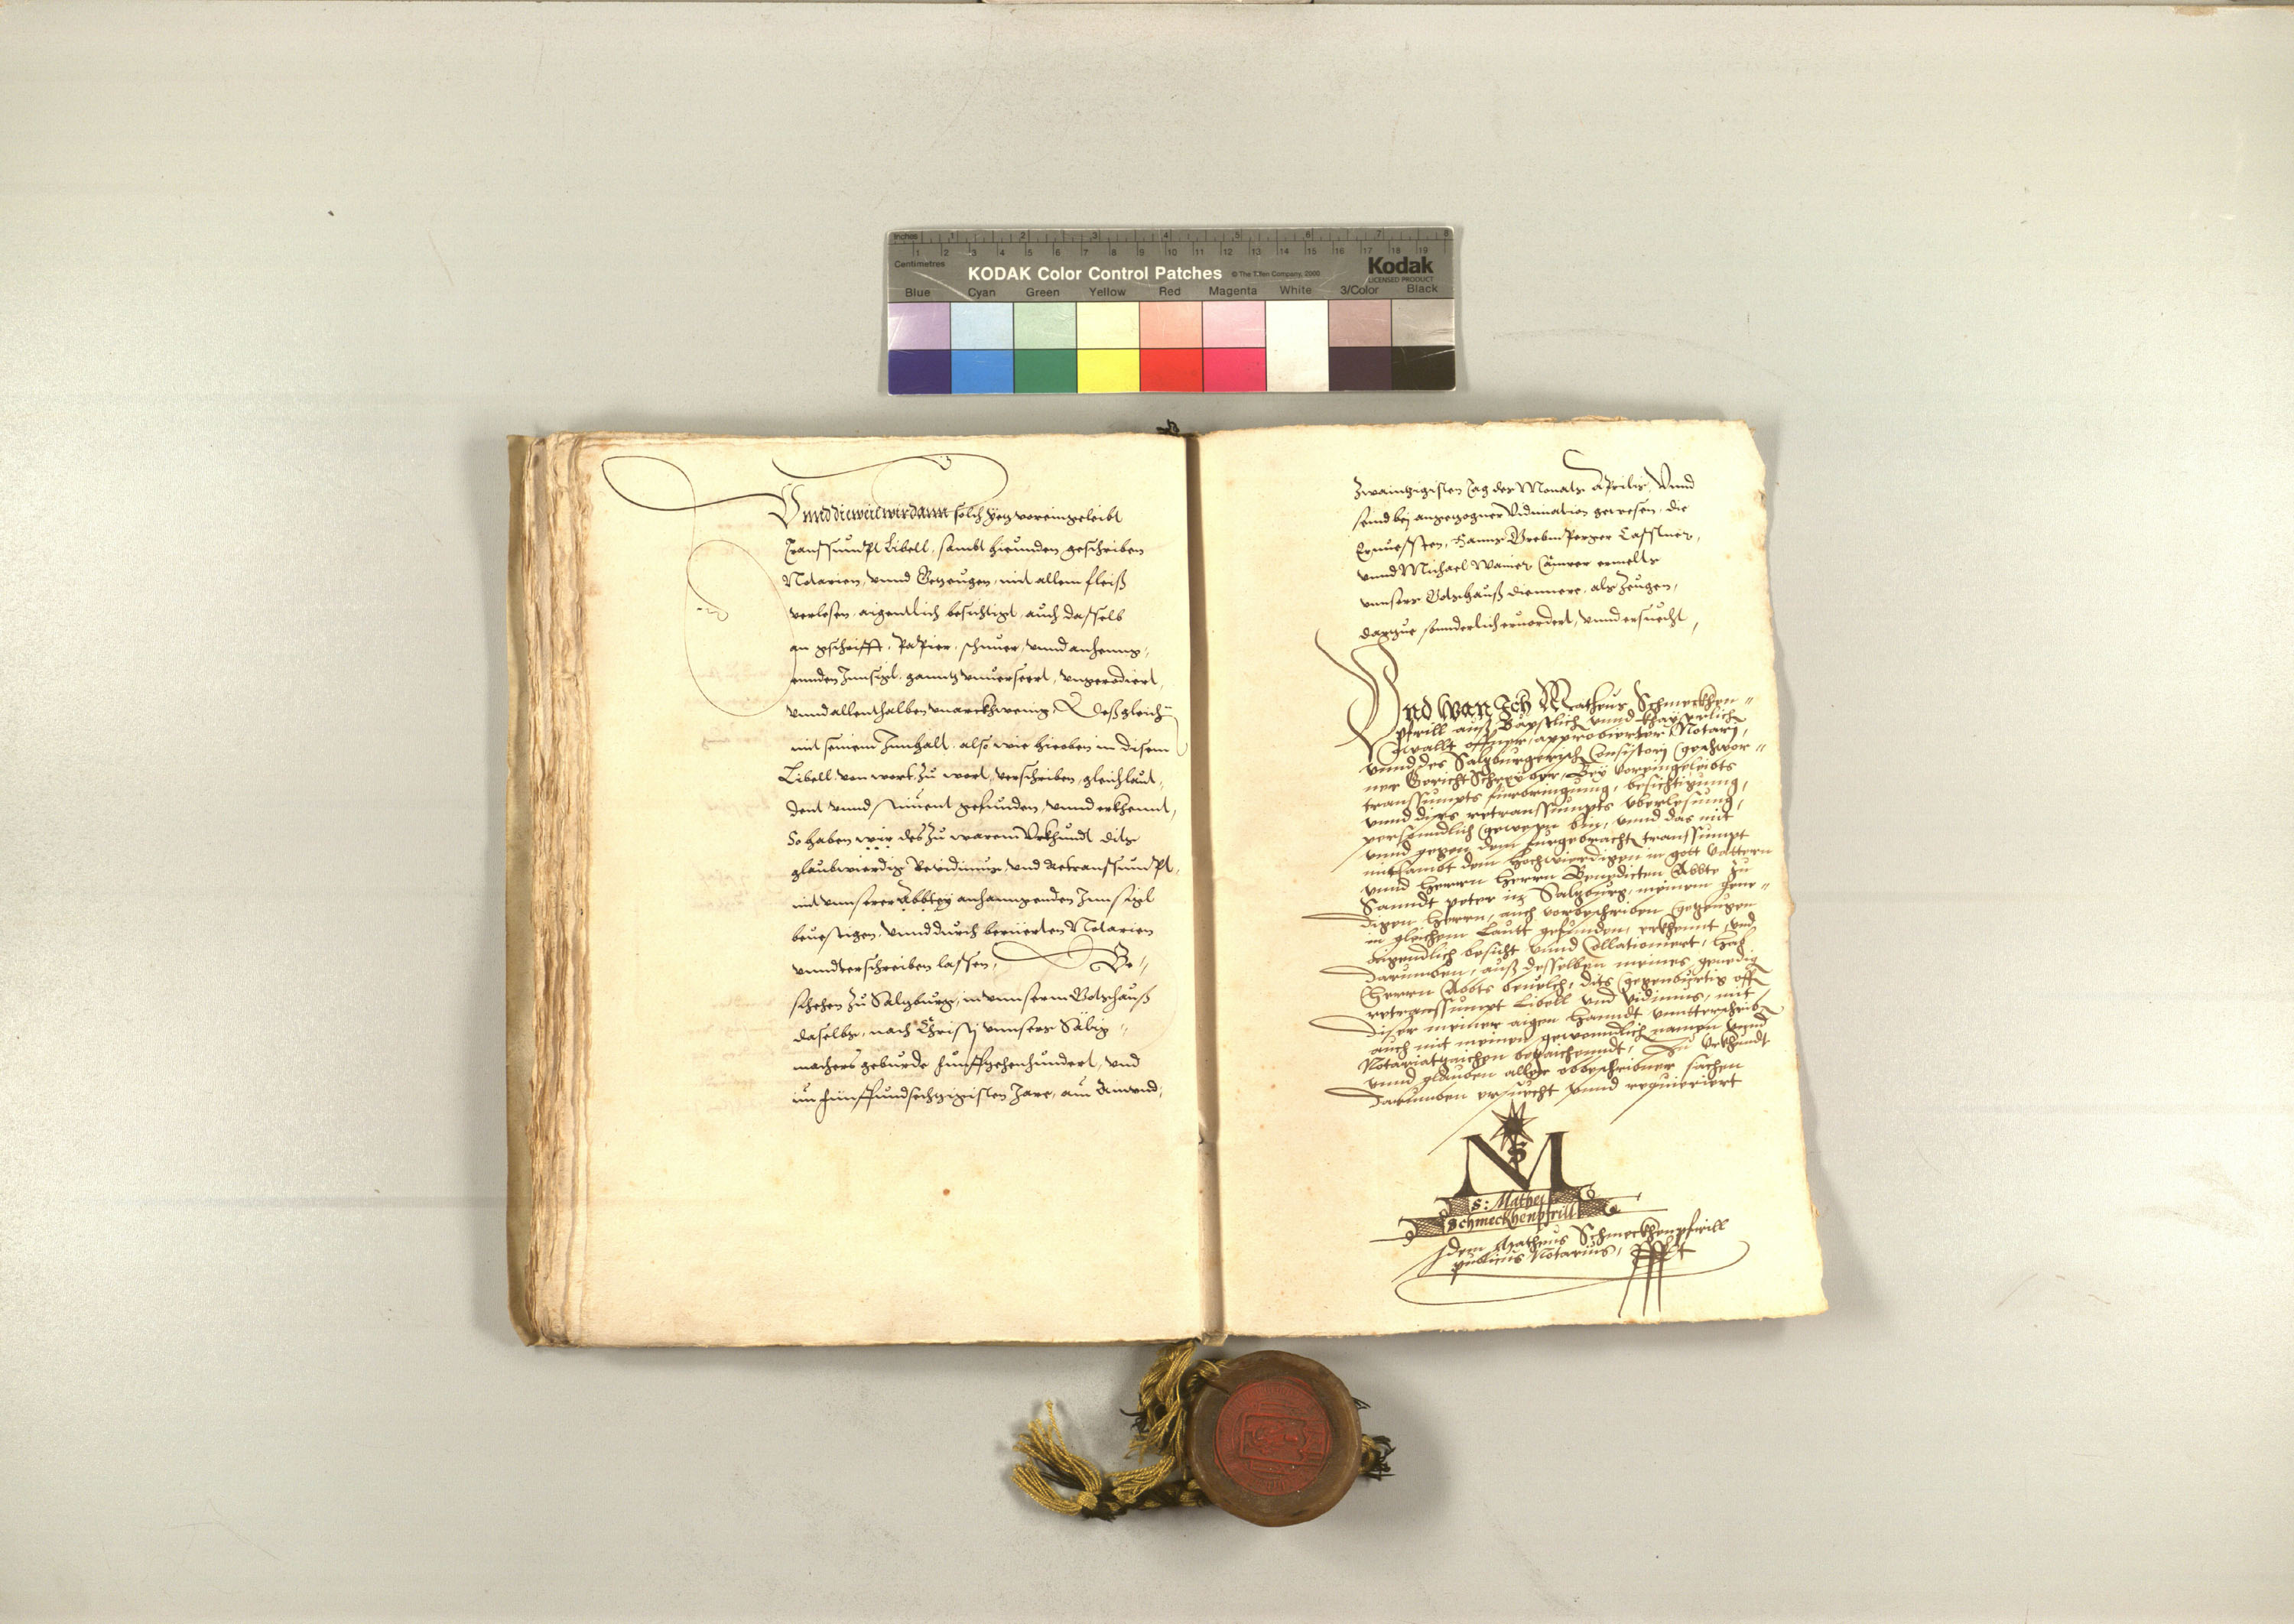 Inches 1 2 3 4 5 6 7 8
1 2 3 4 5 6 7 8 9 10 11 12 13 14 15 16 17 18 19
Centimetres
KODAK Color Control Patches © The Tiffen Company, 2000 Kodak
LICENSED PRODUCT
Blue Cyan Green Yellow Red Magenta White 3/Color Black
Vnnd dieweil wir dann solch yetz voreingeleibt
Transsumpt Libell, sambt hieunden geschriben
Notarien, vnnd Gezeugen, mit allem fleiß
verlesen, aigentlich besichtigt, auch dasselb
an gschrifft, Papier, schnuer, vnnd anhenng-
ennden Innsigl, ganntz vnuerseert, vngeradiert,
vnnd allenthalben vnarckhwenig, Deßgleichen
mit seinem Innhalt, also wie hieoben in disem
Libell von wort zu wort, verschriben, gleichlaut-
dent vnnd gefunden, vnnd erkhennt,
So haben wir des zu warem Vrkhundt ditz
glaubwierdig Revidimus, vnd Retranssumpt,
mit vnnserer Abbtey anhanngenden Innsigl
beuestigen, vnnd durch berüerten Notarien
vnnderschreiben lassen, Ge-
schehen zu Salzburg, in vnnserm Gotzhauß
daselbs, nach Christj vnnsers Sälig-
machers geburde funffzehenhundert, vnd
im fünffundsechzigisten Jare, am Ainvnd-
zwaintzigisten tag des Monats Aprilis, Vnnd
seind bej angezogner Vidimation gewesen, die
Ernuessten, Hanns Castner,
vnnd Michael Camrer ermelts
vnnsers Gotzhauß diennere, als Zeugen,
darzue sonnderlich eruordert, vnnd ersuecht,
Vnd wan Ich Matheus Schmeckhen-
pfrill auß Bäpstlich vnnd khayserlich
gwallt offner, approbierter Notarj,
vnnd des Saltzburgerisch Consistorj geschwor-
ner Gericht Schreyber, Bey voreingeleibts
transsumpts fürbringung, besichtigung,
vnnd diss retranssumpts vberlesung,
personndlich gewesen bin, vnnd das mit
vnnd gegen dem furgebracht transsumpt
mitsambt dem Hochwierdigen in gott vattern
vnnd Herrn Herrn Benedicten Abbte zu
Sanndt peter in Saltzburg, meinem gene-
digen Herrn, auch vorbeschriben gezeugen
in gleichem Lautt gefunden, erkhennt, vnd
aigendlich besicht vnnd Collationiert, Hab
darumben, auß desselben meines genedig
Herrn Abbts beuelch, dits gegenburtig off
retranssumpt Libell vnd Vidimus, mit
diser meiner aigen Hanndt vnntterschribn
auch mit meinen gewonndlich namen vnnd
Notariatzaichen bezaichenndt, Zu Vrkhundt
vnnd glauben aller obbeschribner sachen
darumben ersuecht vnnd requieriert
S
M
S: Mathei
Schmeckhenpfrill
Idem Matheus Schmeckhenpfrill
publicus Notarius,